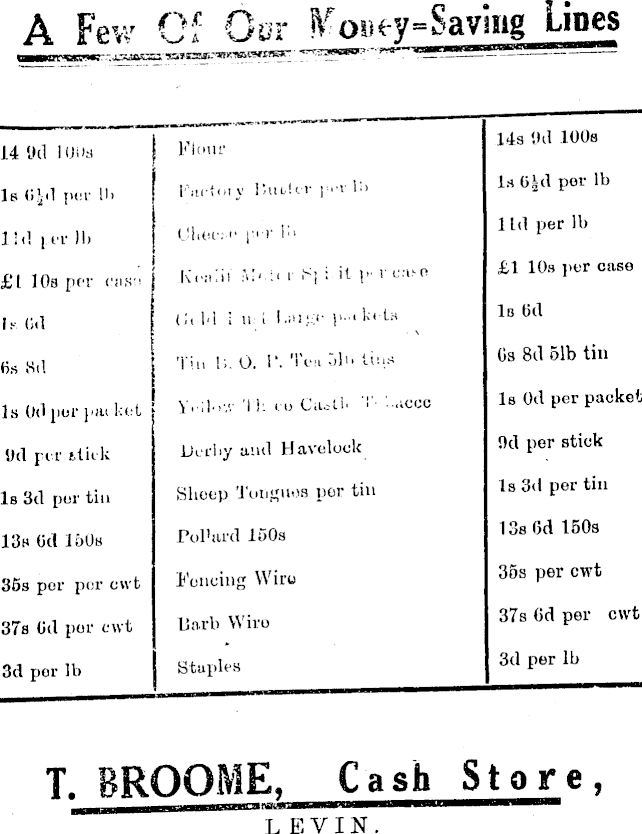 A Few Of Our Money=Saving Lines
14 9d 100s Flour 14s 9d 100s
1s 6½d per lb Factory Butter per lb 1s 6½d per lb
11d per lb Cheese per lb 11d per lb
£1 10s per case per case £1 10s per case
1s 6d Gold Large packets 1s 6d
6s 8d Tin B. O. P. Tea 5lb tins 6s 8d 5lb tin
1s 0d per packet Yellow Three Castle Tobacco 1s 0d per packet
9d per stick Derby and Havelock 9d per stick
1s 3d per tin Sheep Tongues per tin 1s 3d per tin
13s 6d 150s Pollard 150s 13s 6d 150s
35s per per cwt Fencing Wire 35s per cwt
37s 6d per cwt Barb Wire 37s 6d per cwt
3d per lb Staples 3d per lb
T. BROOME, Cash Store,
LEVIN.